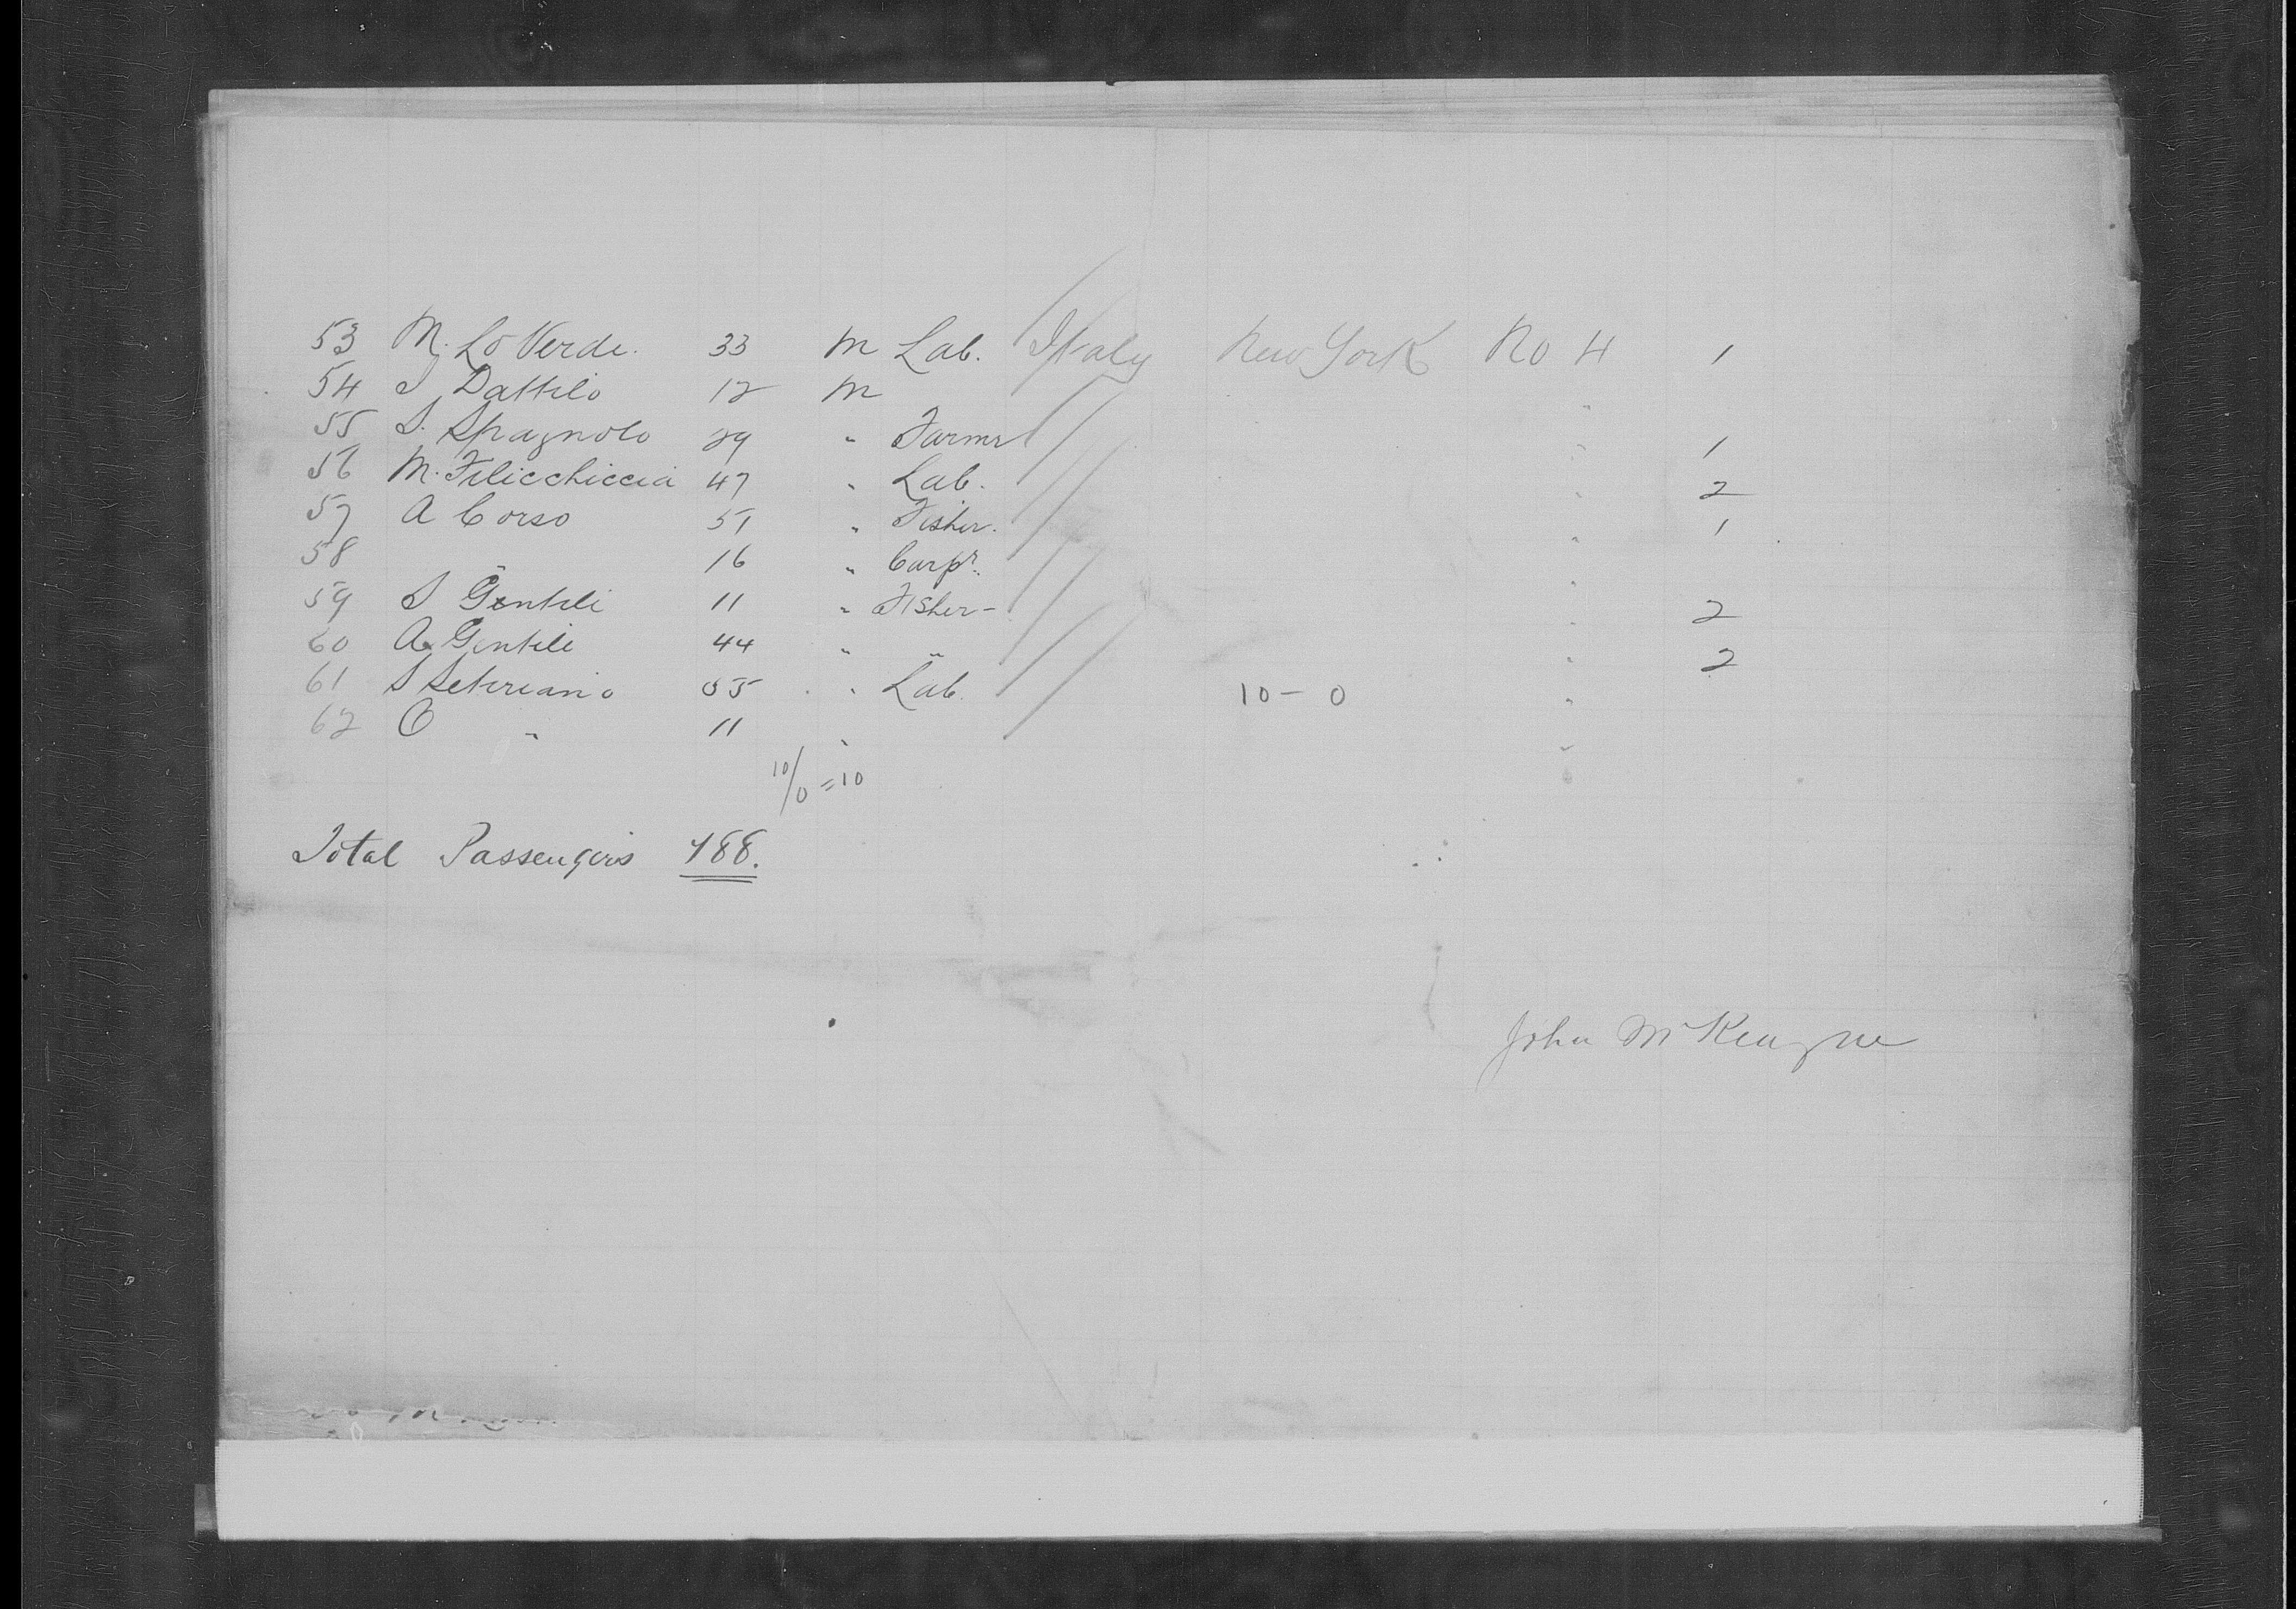 53 M. Lo Verde. 33 m Lab. Italy New York No 4 1
54 S Dattilo 12 m "
55 S. Spagnolo 29 " Farmr " 1
56 M. Filicchiccia 47 " Lab. " 2
57 A Corso 51 " Fisher. " 1
58 " 16 " Carpr. "
59 S Gentili 11 " Fisher - " 2
60 A. Gentili 44 " " " 2
61 S 35 " Lab. 10 - 0 "
62 " 11 " "
10/0 = 10
Total Passengers 488.
John